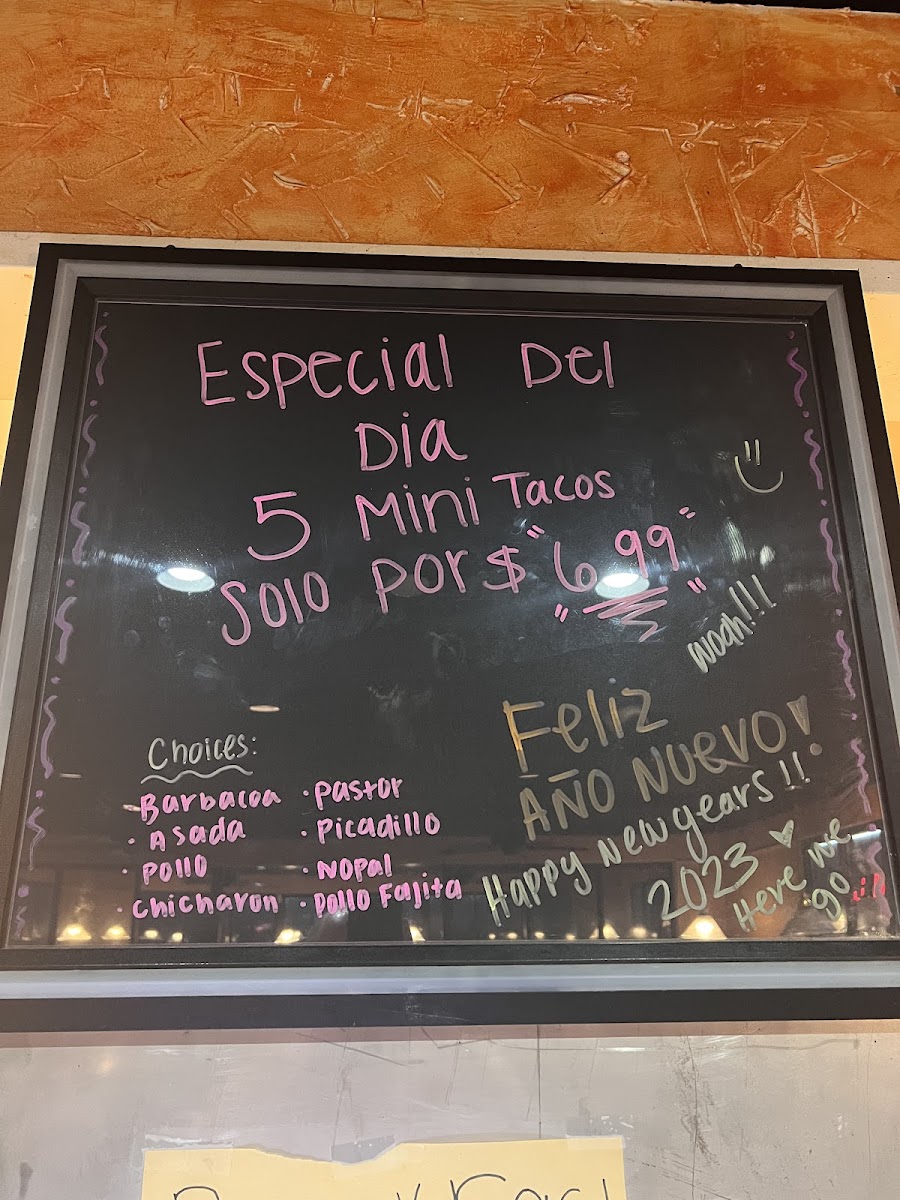 Especial Del
Dia
5 Mini Tacos
Solo por $"6.99"
woah!!!
Choices:
· Barbacoa
· Asada
· Pollo
· Chicharon
· Pastor
· Picadillo
· Nopal
· Pollo Fajita
Feliz
AÑO NUEVO!
Happy New years!!
2023
Here we
go